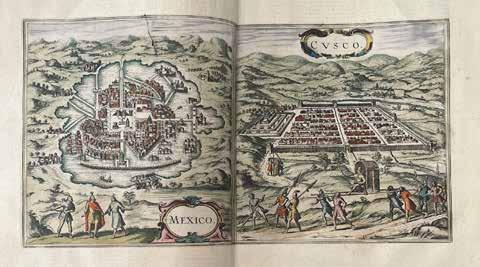 MEXICO.
CVSCO.